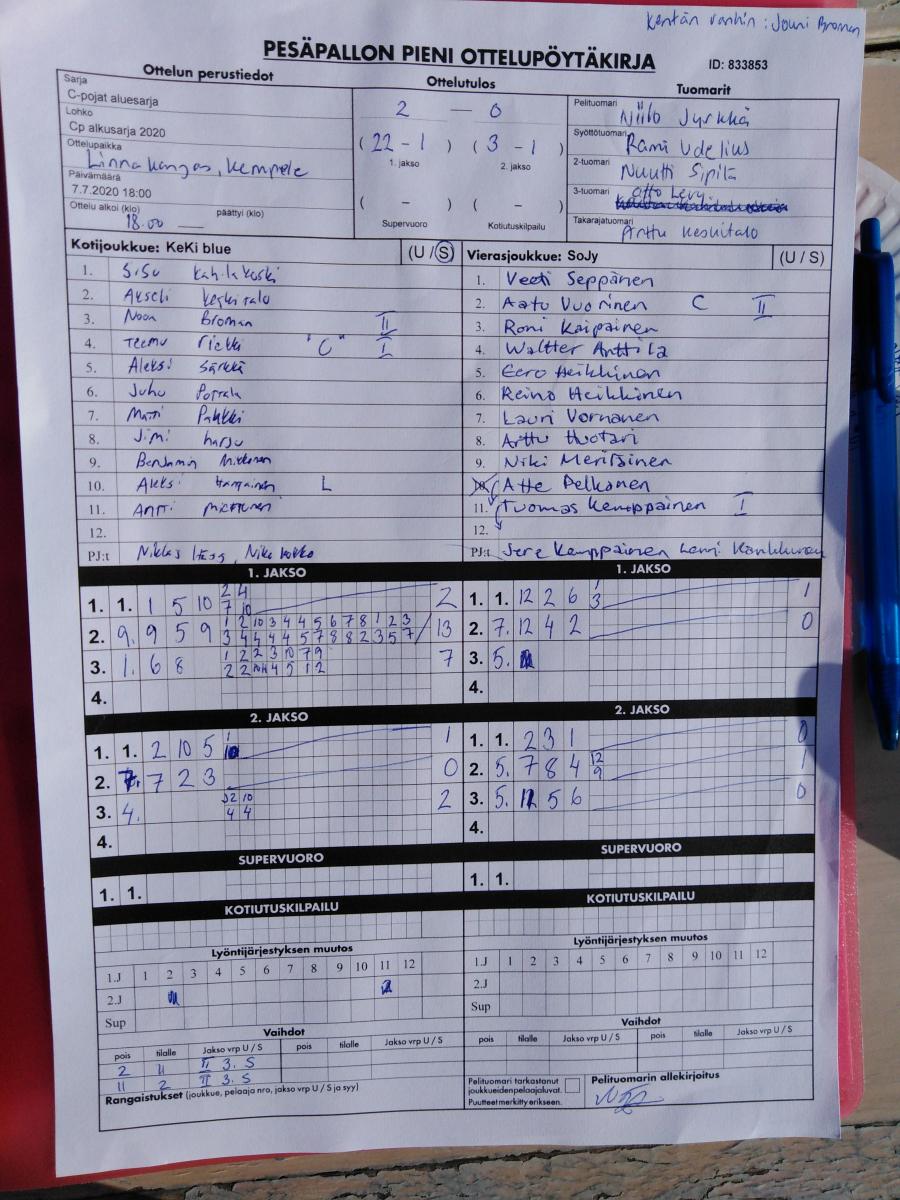 Kentän vanhin : Jouni Broman
PESÄPALLON PIENI OTTELUPÖYTÄKIRJA
ID: 833853
Ottelun perustiedot
Sarja
C-pojat aluesarja
Lohko
Cp alkusarja 2020
Ottelupaikka
Linnakangas, Kempele
Päivämäärä
7.7.2020 18:00
Ottelu alkoi (klo) 18.00 päättyi (klo)
Ottelutulos
2 — 0
( 22 - 1 ) ( 3 - 1 )
1. jakso 2. jakso
( - ) ( - )
Supervuoro Kotiutuskilpailu
Tuomarit
Pelituomari Niilo Jyrkkä
Syöttötuomari Rami Udelius
2-tuomari Nuutti Sipilä
3-tuomari Otto Levy
Takarajatuomari
Arttu Keskitalo
Kotijoukkue: KeKi blue (U / S)
1. Sisu Kahlakoski
2. Akseli Keskitalo
3. Nooa Broman II
4. Teemu "C" I
5. Aleksi Särkkä
6. Juho
7. Matti
8. Jimi Harju
9. Benjamin
10. Aleksi L
11. Antti
12.
PJ:t Niklas
Vierasjoukkue: SoJy (U / S)
1. Veeti Seppänen
2. Aatu Vuorinen C II
3. Roni Kaipainen
4. Waltter Anttila
5. Eero Heikkinen
6. Reino Heikkinen
7. Lauri Vornanen
8. Arttu Huotari
9. Niki Meriläinen
Atte Pelkonen
11. Tuomas Kemppainen I
12.
PJ:t Jere Kemppainen Lauri Karhunen
1. JAKSO
1. 1. 1 5 10 2 4 2
7 10
2. 9. 9 5 9 1 2 10 3 4 4 5 6 7 8 1 2 3 13
3 4 4 4 4 5 7 8 8 2 3 5 7
3. 1. 6 8 1 2 2 3 10 7 9 7
4.
1. JAKSO
1. 1. 12 2 6 1 1
3
2. 7. 12 4 2 0
3. 5.
4.
2. JAKSO
1. 1. 2 10 5 1 1
10
2. 7. 7 2 3 0
3. 4. 10 2
4 4
4.
2. JAKSO
1. 1. 2 3 1 0
2. 5. 7 8 4 12 1
9
3. 5. 5 6 0
4.
SUPERVUORO
1. 1.
SUPERVUORO
1. 1.
KOTIUTUSKILPAILU
KOTIUTUSKILPAILU
Lyöntijärjestyksen muutos
1.J 1 2 3 4 5 6 7 8 9 10 11 12
2.J
Sup
Lyöntijärjestyksen muutos
1.J 1 2 3 4 5 6 7 8 9 10 11 12
2.J
Sup
Vaihdot
pois tilalle Jakso vrp U / S pois tilalle Jakso vrp U / S
2 11 II 3. S
11 2 II 3. S
Rangaistukset (joukkue, pelaaja nro, jakso vrp U / S ja syy)
Vaihdot
pois tilalle Jakso vrp U / S pois tilalle Jakso vrp U / S
Pelituomari tarkastanut
joukkueidenpelaajaluvat.
Puutteet merkitty erikseen.
Pelituomarin allekirjoitus